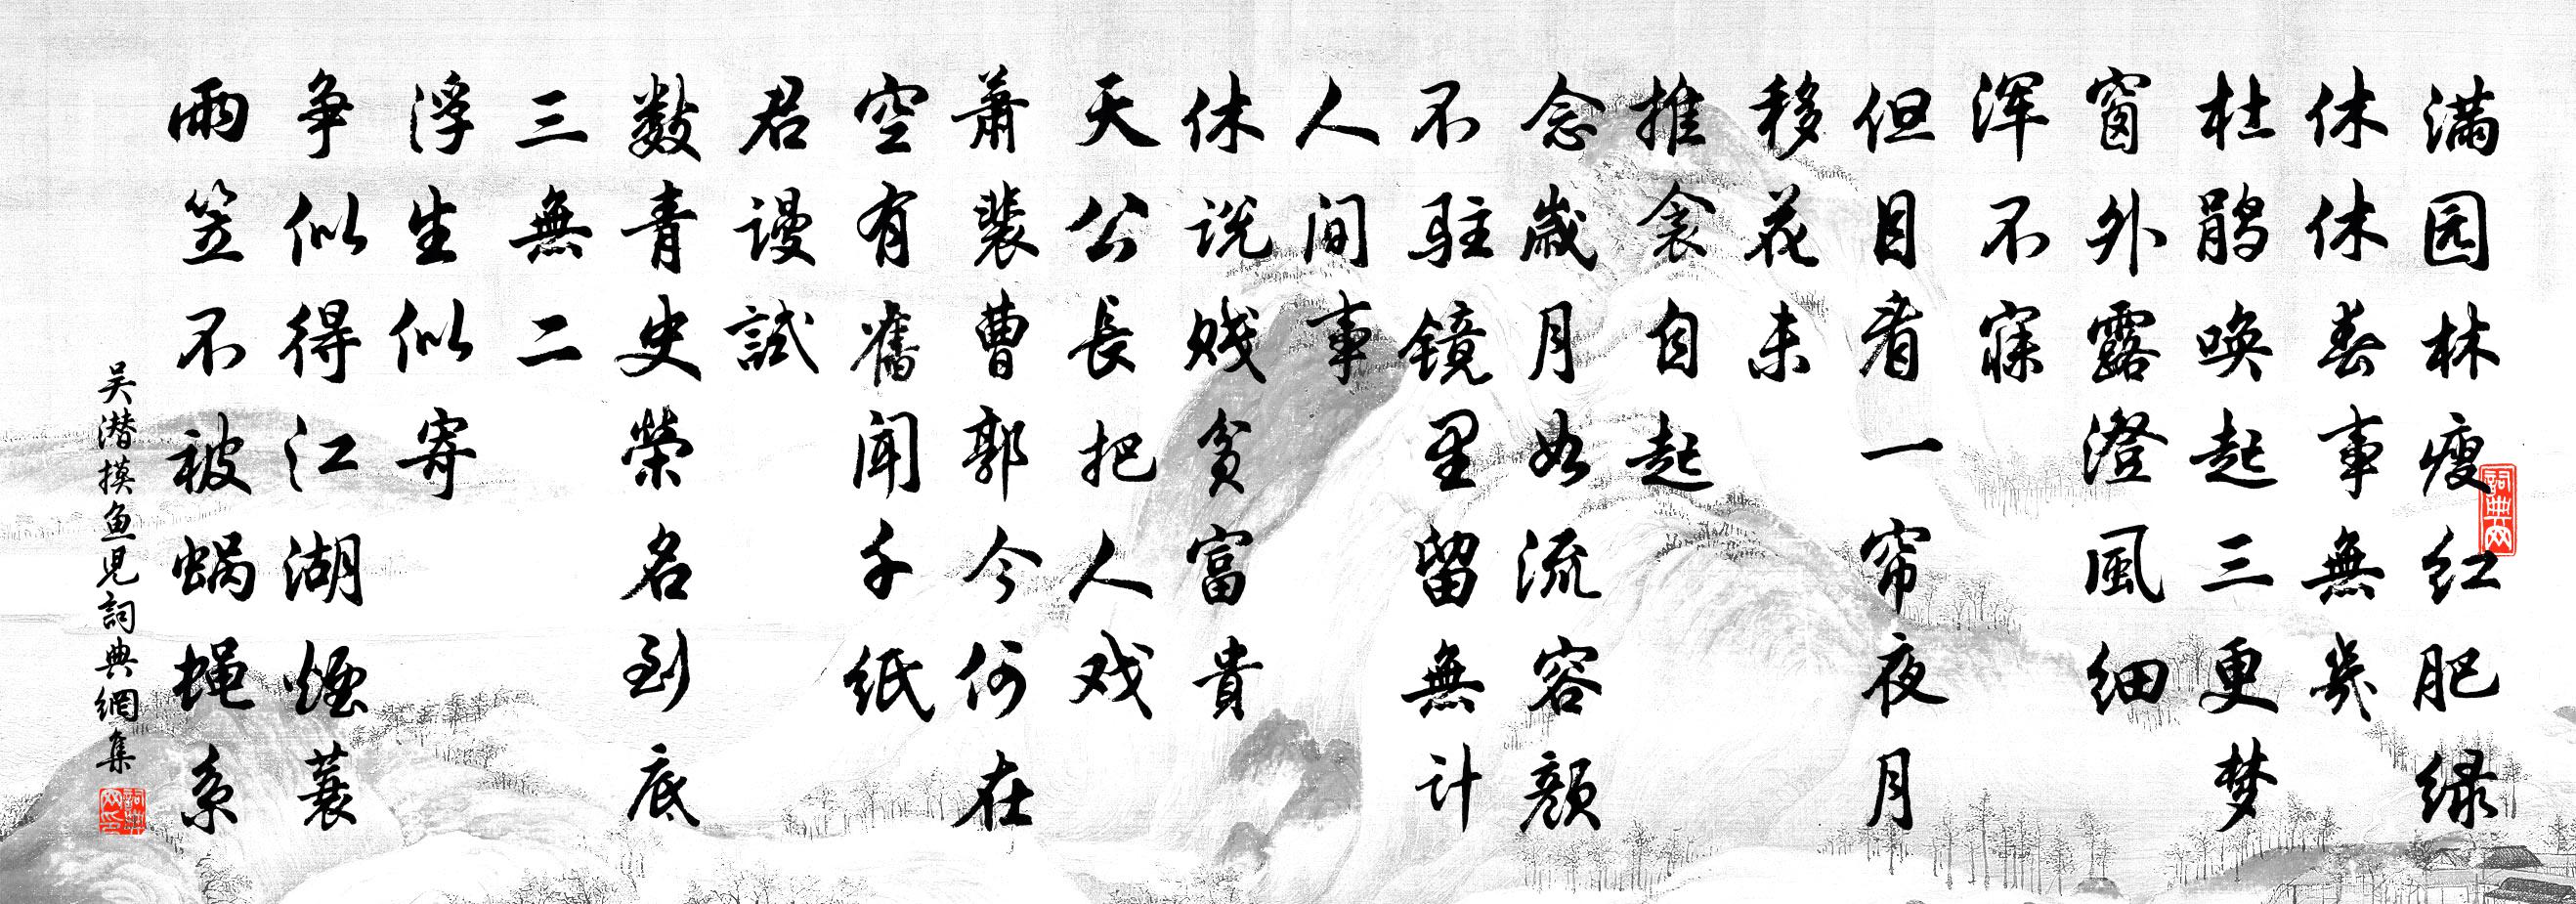 满园林瘦红肥绿
休休春事無幾
杜鹃唤起三更梦
窗外露澄風细
浑不寐
但目看一帘夜月
移花未
推衾自起
念歲月如流容颜
不駐镜里留無计
人间事
休说贱贫富貴
天公長把人戏
萧裴曹郭今何在
空有舊闻千纸
君謾試
数青史榮名到底
三無二
浮生似寄
争似得江湖煙蓑
雨笠不被蜗蝇系
吴潜摸鱼兒詞典網集
詞典网